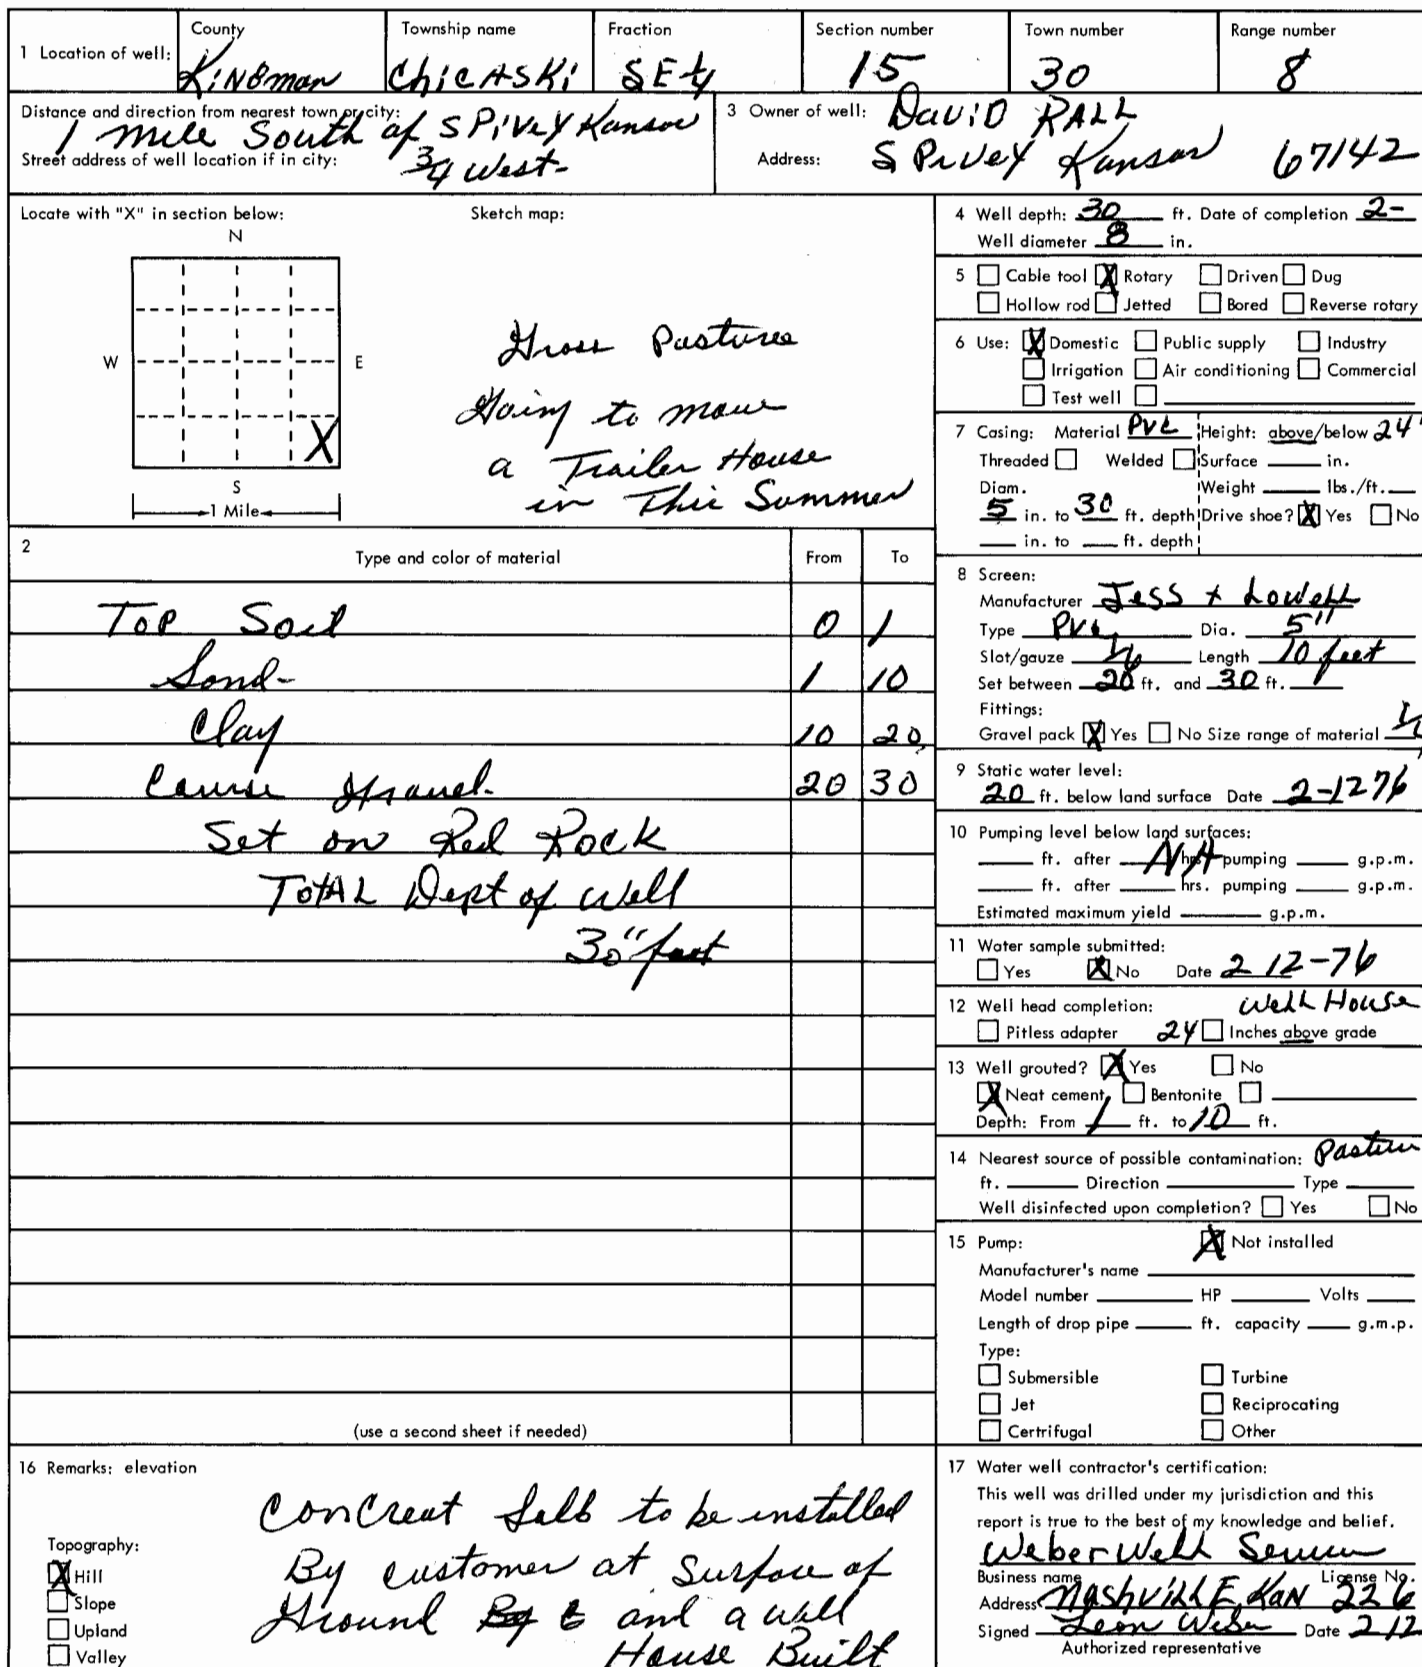 1 Location of well:
County
KiNGman
Township name
ChiCASKi
Fraction
SE¼
Section number
15
Town number
30
Range number
8
Distance and direction from nearest town or city:
1 mile South of SPiVeY Kansas
Street address of well location if in city:
¾ West-
3 Owner of well: DaViD RALL
Address: SPiVeY Kansas 67142
Locate with "X" in section below:
N
W
E
X
S
1 Mile
Sketch map:
Grass Pastures
Going to move
a Trailer House
in This Summer
4 Well depth: 30 ft. Date of completion 2-
Well diameter 8 in.
5 Cable tool X Rotary Driven Dug
Hollow rod Jetted Bored Reverse rotary
6 Use: X Domestic Public supply Industry
Irrigation Air conditioning Commercial
Test well
7 Casing: Material PVC Height: above/below 24"
Threaded Welded Surface in.
Diam. Weight lbs./ft.
5 in. to 30 ft. depth Drive shoe? X Yes No
in. to ft. depth
8 Screen:
Manufacturer Jess + Lowell
Type PVC Dia. 5"
Slot/gauze Length 10 feet
Set between 20 ft. and 30 ft.
Fittings:
Gravel pack X Yes No Size range of material
9 Static water level:
20 ft. below land surface Date 2-1276
10 Pumping level below land surfaces:
ft. after NA hrs. pumping g.p.m.
ft. after hrs. pumping g.p.m.
Estimated maximum yield g.p.m.
11 Water sample submitted:
Yes X No Date 2 12-76
12 Well head completion: Well House
Pitless adapter 24 Inches above grade
13 Well grouted? X Yes No
X Neat cement Bentonite
Depth: From 1 ft. to 10 ft.
14 Nearest source of possible contamination: Pasture
ft. Direction Type
Well disinfected upon completion? Yes No
15 Pump: X Not installed
Manufacturer's name
Model number HP Volts
Length of drop pipe ft. capacity g.m.p.
Type:
Submersible Turbine
Jet Reciprocating
Certrifugal Other
2 Type and color of material From To
Top Soil 0 1
Sand- 1 10
Clay 10 20
Course Gravel- 20 30
Set on Red Rock
ToTAL Dept of Well
30" feet
(use a second sheet if needed)
16 Remarks: elevation
Concreat Salb to be installed
By customer at Surface of
Ground and a well
House Built
Topography:
X Hill
Slope
Upland
Valley
17 Water well contractor's certification:
This well was drilled under my jurisdiction and this
report is true to the best of my knowledge and belief.
Weber Well Service
Business name License No.
Address NAshViLLE, KAN 226
Signed Leon Weber Date 2 12
Authorized representative